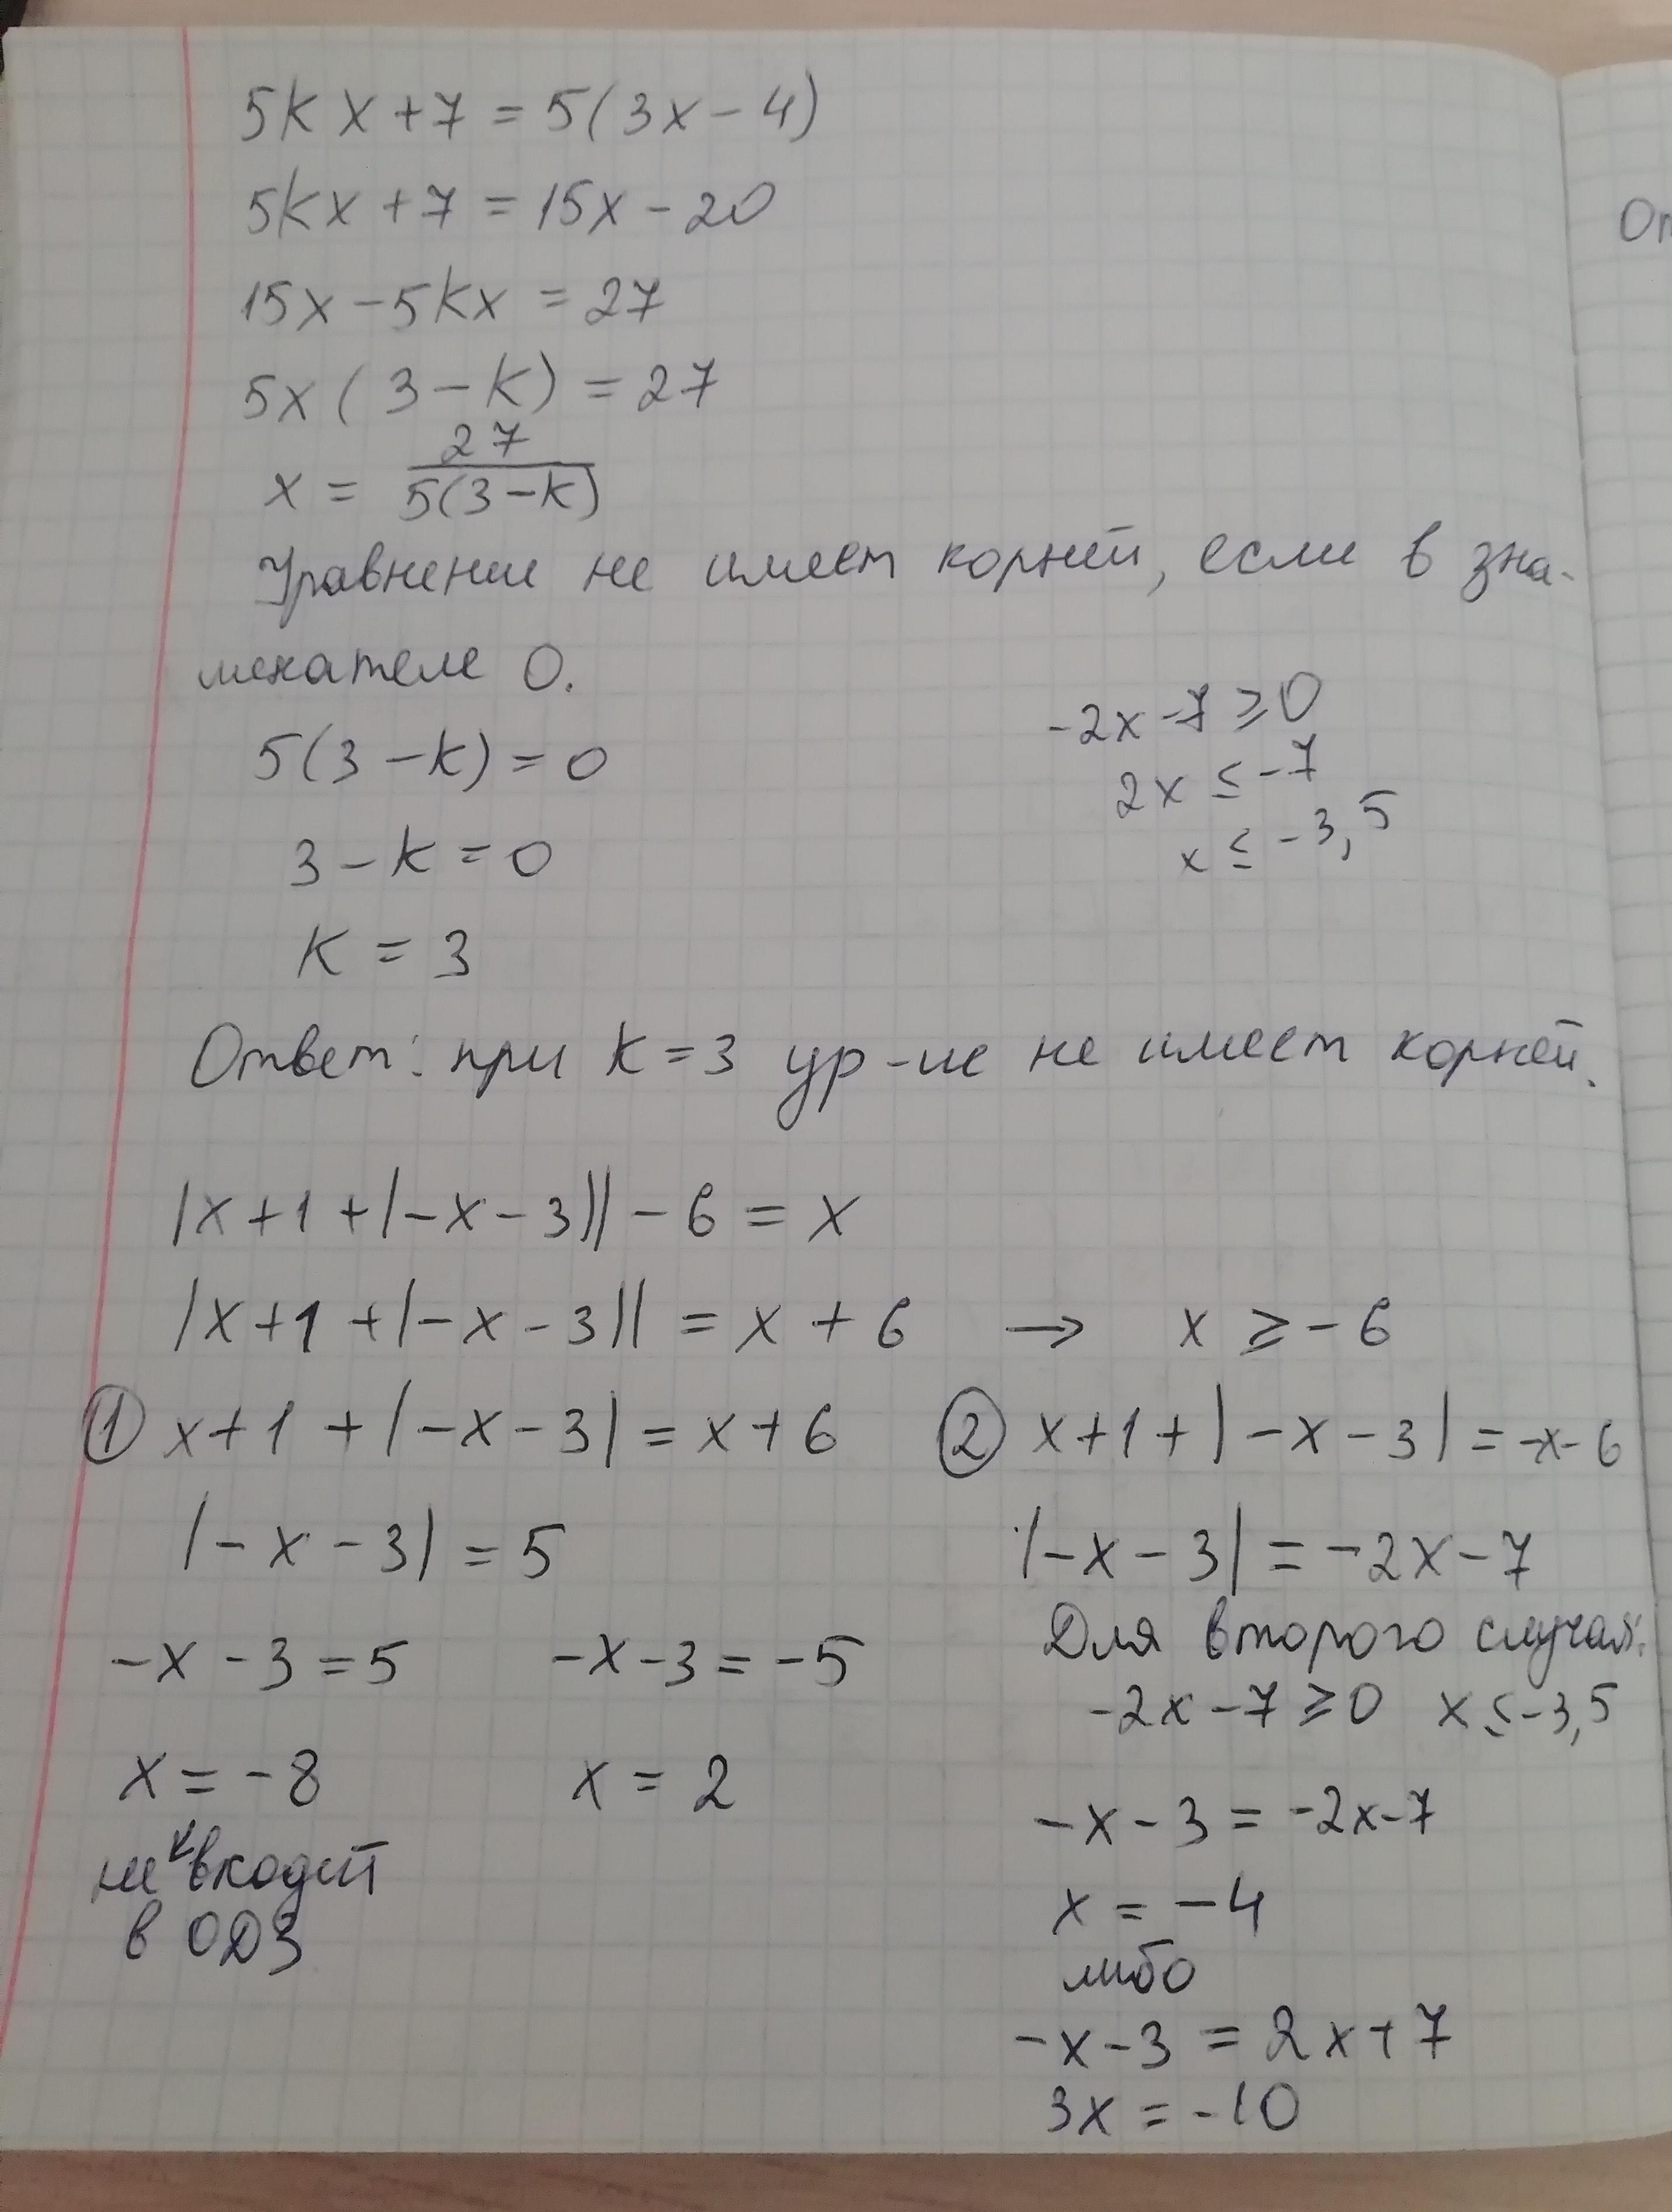 5kx + 7 = 5(3x - 4)
5kx + 7 = 15x - 20
15x - 5kx = 27
5x(3 - k) = 27
x = 27 / 5(3 - k)
Уравнение не имеет корней, если в зна-
менателе 0.
5(3 - k) = 0
3 - k = 0
k = 3
-2x - 7 ≥ 0
2x ≤ -7
x ≤ -3,5
Ответ: при k = 3 ур-ие не имеет корней.
|x + 1 + |-x - 3|| - 6 = x
|x + 1 + |-x - 3|| = x + 6 → x ≥ -6
① x + 1 + |-x - 3| = x + 6
|-x - 3| = 5
-x - 3 = 5 -x - 3 = -5
x = -8 x = 2
не входит
в ОДЗ
② x + 1 + |-x - 3| = -x - 6
|-x - 3| = -2x - 7
Для второго случая:
-2x - 7 ≥ 0 x ≤ -3,5
-x - 3 = -2x - 7
x = -4
либо
-x - 3 = 2x + 7
3x = -10